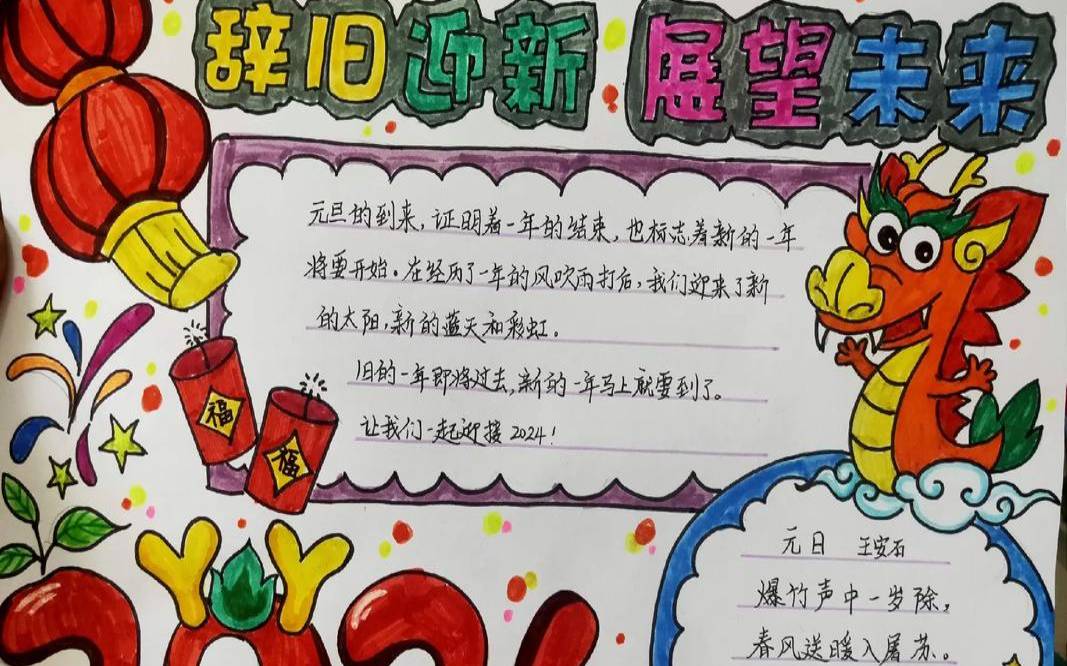 辞旧迎新 展望未来
元旦的到来,证明着一年的结束,也标志着新的一年
将要开始。在经历了一年的风吹雨打后,我们迎来了新
的太阳,新的蓝天和彩虹。
旧的一年即将过去,新的一年马上就要到了。
让我们一起迎接2024!
福
福
元日 王安石
爆竹声中一岁除,
春风送暖入屠苏。